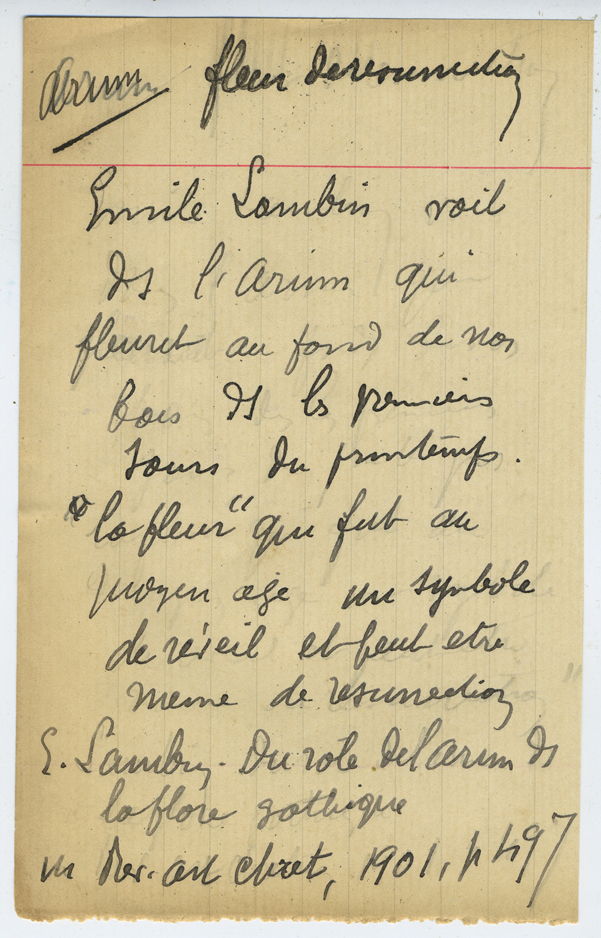 Arum fleur de resurrection
Emile Lambin voit
ds l'Arum qui
fleurit au fond de nos
bois ds les premiers
jours du printemps.
"la fleur" qui fut au
moyen age un symbole
de réveil et peut etre
meme de resurrection
E. Lambin. Du role de l'arum ds
la flore gothique
in Rev. art chret, 1901, p 497